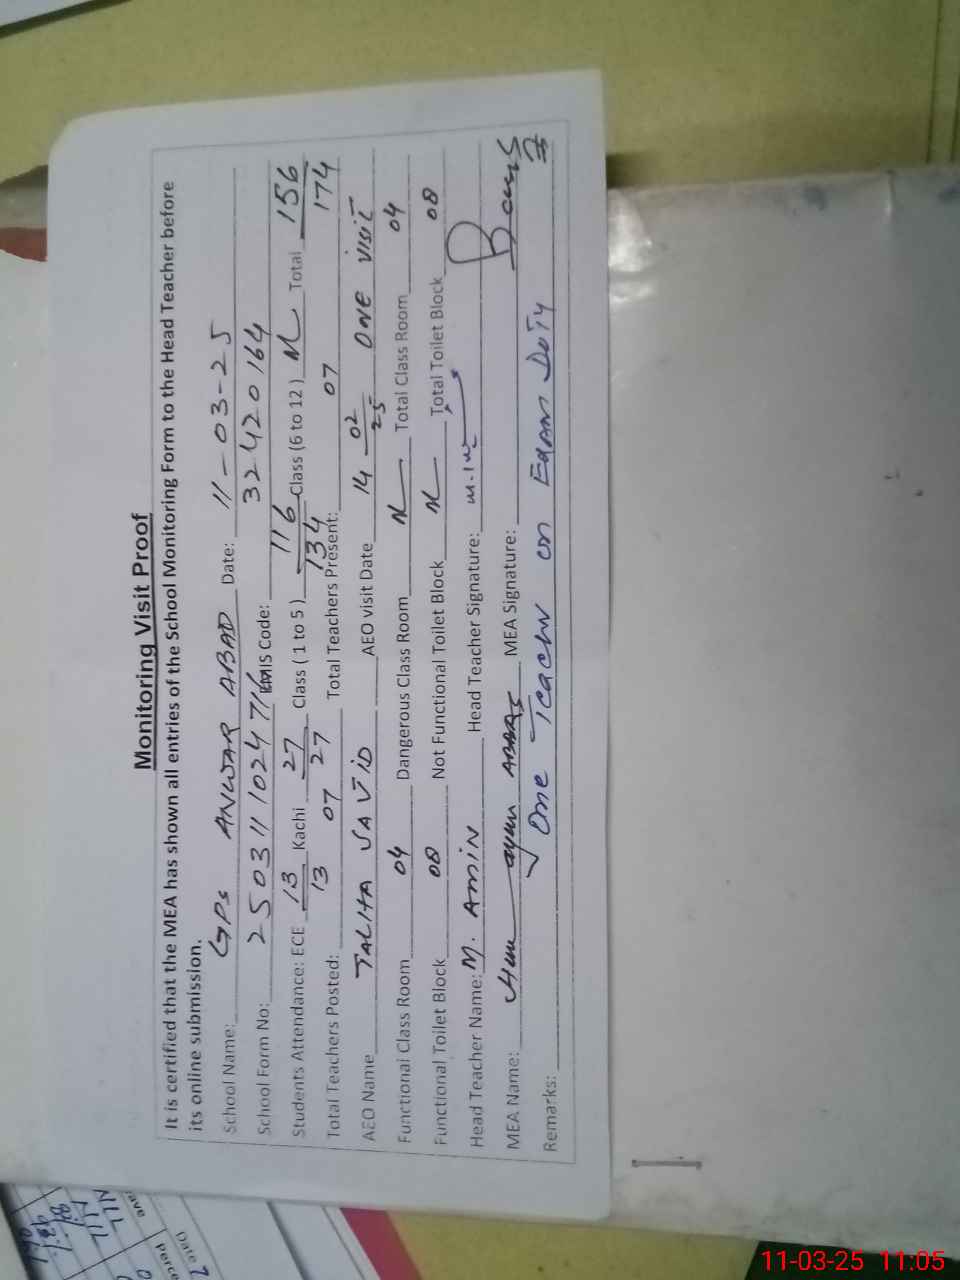 Monitoring Visit Proof
It is certified that the MEA has shown all entries of the School Monitoring Form to the Head Teacher before
its online submission.
School Name: GPS ANWAR ABAD Date: 11-03-25
School Form No: 25031102471 EMIS Code: 32420164
Students Attendance: ECE 13 Kachi 27 Class (1 to 5) 116 Class (6 to 12) NIL Total 156
13 27 134 174
Total Teachers Posted: 07 Total Teachers Present: 07
AEO Name TALHA JAVID AEO visit Date 14 02 25 ONE VISIT
Functional Class Room 04 Dangerous Class Room NIL Total Class Room 04
Functional Toilet Block 08 Not Functional Toilet Block NIL Total Toilet Block 08
Head Teacher Name: M. AMIN Head Teacher Signature:
MEA Name: ABBAS MEA Signature:
Remarks: One Teacher on Exam Duty
11-03-25 11:05